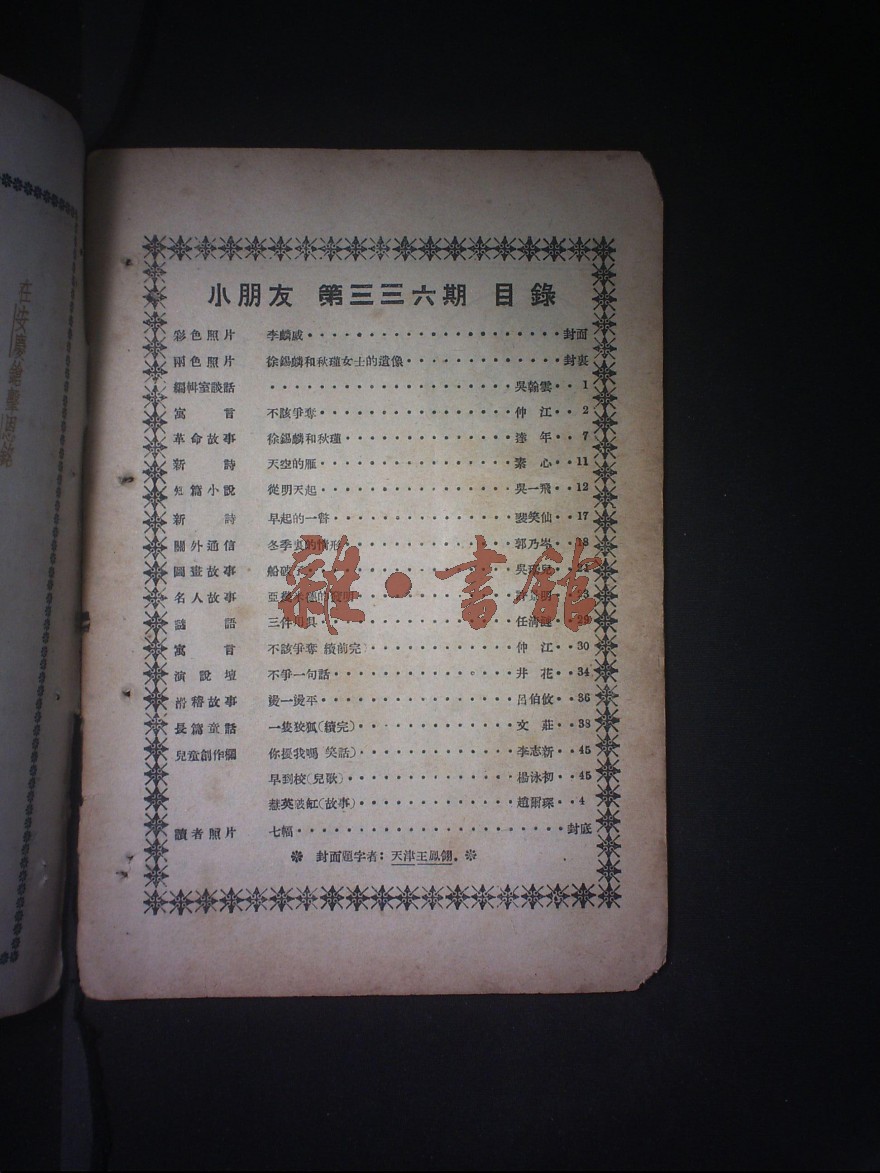 小朋友 第三三六期 目錄
彩色照片 李麟威 封面
兩色照片 徐錫麟和秋瑾女士的遺像 封裏
編輯室談話 吳翰雲 1
寓言 不該爭奪 仲江 2
革命故事 徐錫麟和秋瑾 達年 7
新詩 天空的雁 素心 11
短篇小說 從明天起 吳一飛 12
新詩 早起的一瞥 裴笑仙 17
關外通信 冬季裏的情形 郭乃岑
圖畫故事 船破了 吳
名人故事 亞 的發明 許 明
謎語 三件用具 任 29
寓言 不該爭奪(續前完) 仲江 30
演說壇 不爭一句話 井花 34
滑稽故事 燙一燙平 呂伯攸 36
長篇童話 一隻狡狐(續完) 文莊 38
兒童創作欄 你援我嗎(笑話) 李志新 45
早到校(兒歌) 楊泳初 45
慧英破缸(故事) 趙爾琛 4
讀者照片 七幅 封底
封面題字者:天津王鳳翎。
雜·書館